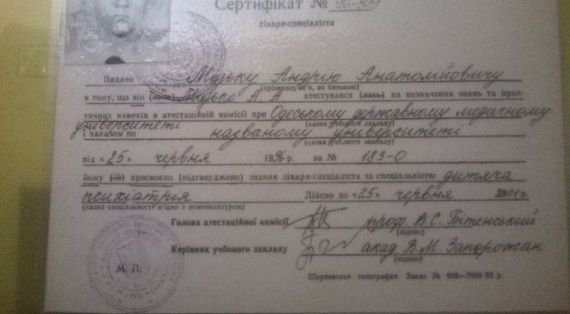 Сертифікат №
лікаря-спеціаліста
Видано Андрію Анатолійовичу
(прізвище, ім'я, по батькові)
в тому, що він А. А. атестувався (лась) на визначення знань та прак-
тичних навичок в атестаційній комісії при Одеському державному медичному
університеті
(назва учбового закладу)
і наказом по названому університеті
(назва учбового закладу)
від «25» червня 1996 р. за № 183-О
йому (їй) присвоєно (підтверджено) звання лікаря-спеціаліста за спеціальністю дитяча
психіатрія Дійсно до «25» червня 2001 р.
(назва спеціальності згідно з номенклатурою)
Голова атестаційної комісії проф. В.С. Бітенський
(підпис)
Керівник учбового закладу акад. В.М. Запорожан
(підпис)
М. П.
Зам. № 908-2000